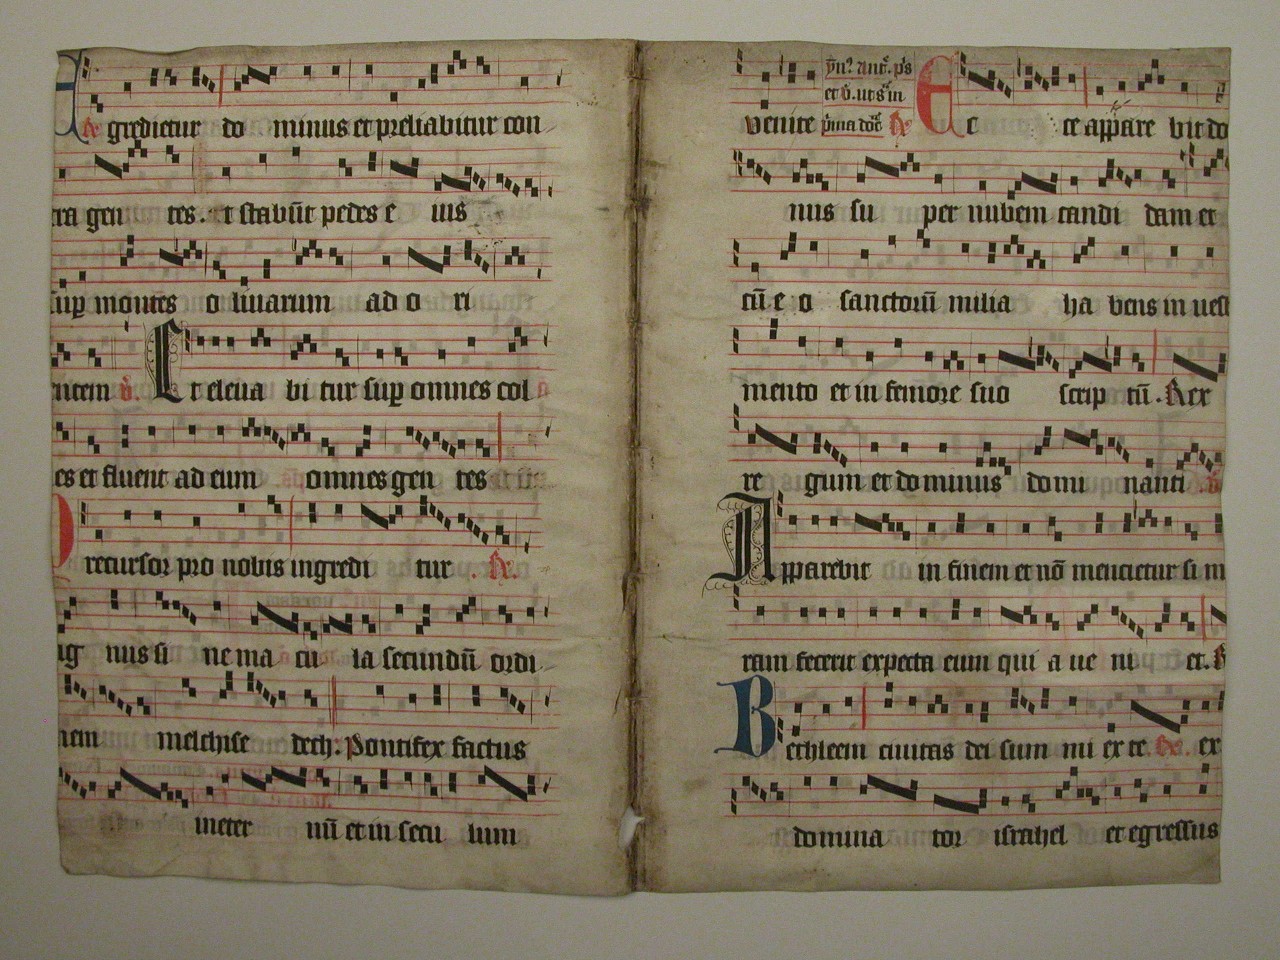 gredietur do minus et preliabitur con
tra gen tes. et stabūt pedes e ius
sup̄ montes o liuarum ad o ri
entem v̄. Et eleua bi tur sup̄ omnes col
es et fluent ad eum omnes gen tes
Precursor pro nobis ingredi tur . R̄.
ag nus si ne ma cu la secundū ordi
nem melchise dech: Pontifex factus
in eter nū et in secu lum
et v̄. ut sͥ in
venite p̄ma dōc̄ R̄ Ec ce appare bit do
nus su per nubem candi dam et
cū e o sanctorū milia ha bens in uesti
mento et in femore suo scrip tū . Rex
re gum et do minus do mi nanti . v̄
Apparebit in finem et nō mencietur si m
ram fecerit expecta eum qui a ue ni et. R
Bethleem ciuitas dei sum mi ex te . R̄. ex
domina tor israhel et egressus